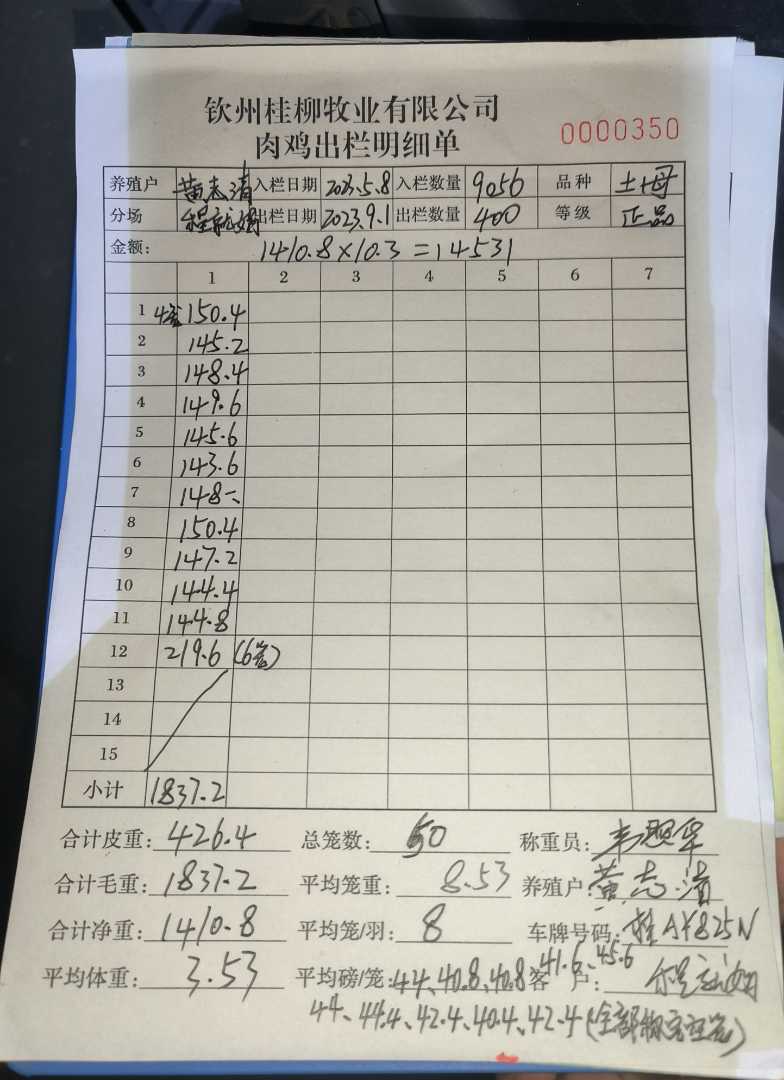 钦州桂柳牧业有限公司
肉鸡出栏明细单 0000350
养殖户 黄志清 入栏日期 2023.5.8 入栏数量 9056 品种 土母
分场 出栏日期 2023.9.1 出栏数量 400 等级 正品
金额: 1410.8×10.3=14531
1 2 3 4 5 6 7
1 4笼 150.4
2 145.2
3 148.4
4 149.6
5 145.6
6 143.6
7 148
8 150.4
9 147.2
10 144.4
11 144.8
12 219.6 (6笼)
13
14
15
小计 1837.2
合计皮重: 426.4 总笼数: 50 称重员:
合计毛重: 1837.2 平均笼重: 8.53 养殖户: 黄志清
合计净重: 1410.8 平均笼/羽: 8 车牌号码: 桂AY825N
平均体重: 3.53 平均磅/笼: 44、40.8、40.8 客户: 41.6、45.6
44、44.4、42.4、40.4、42.4